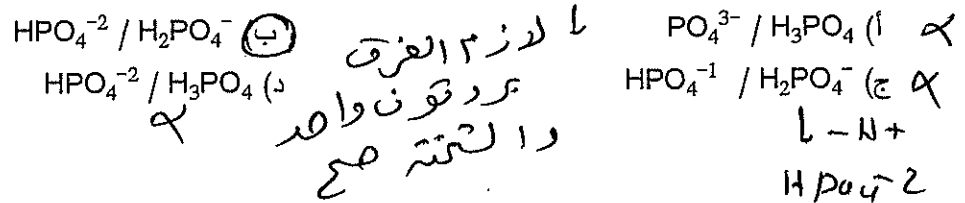 أ) PO₄³⁻ / H₃PO₄
ب) HPO₄⁻² / H₂PO₄⁻
ج) HPO₄⁻¹ / H₂PO₄⁻
د) HPO₄⁻² / H₃PO₄
لازم الفرق
بروتون واحد
والشحنة صح
- H+
HPO4-2